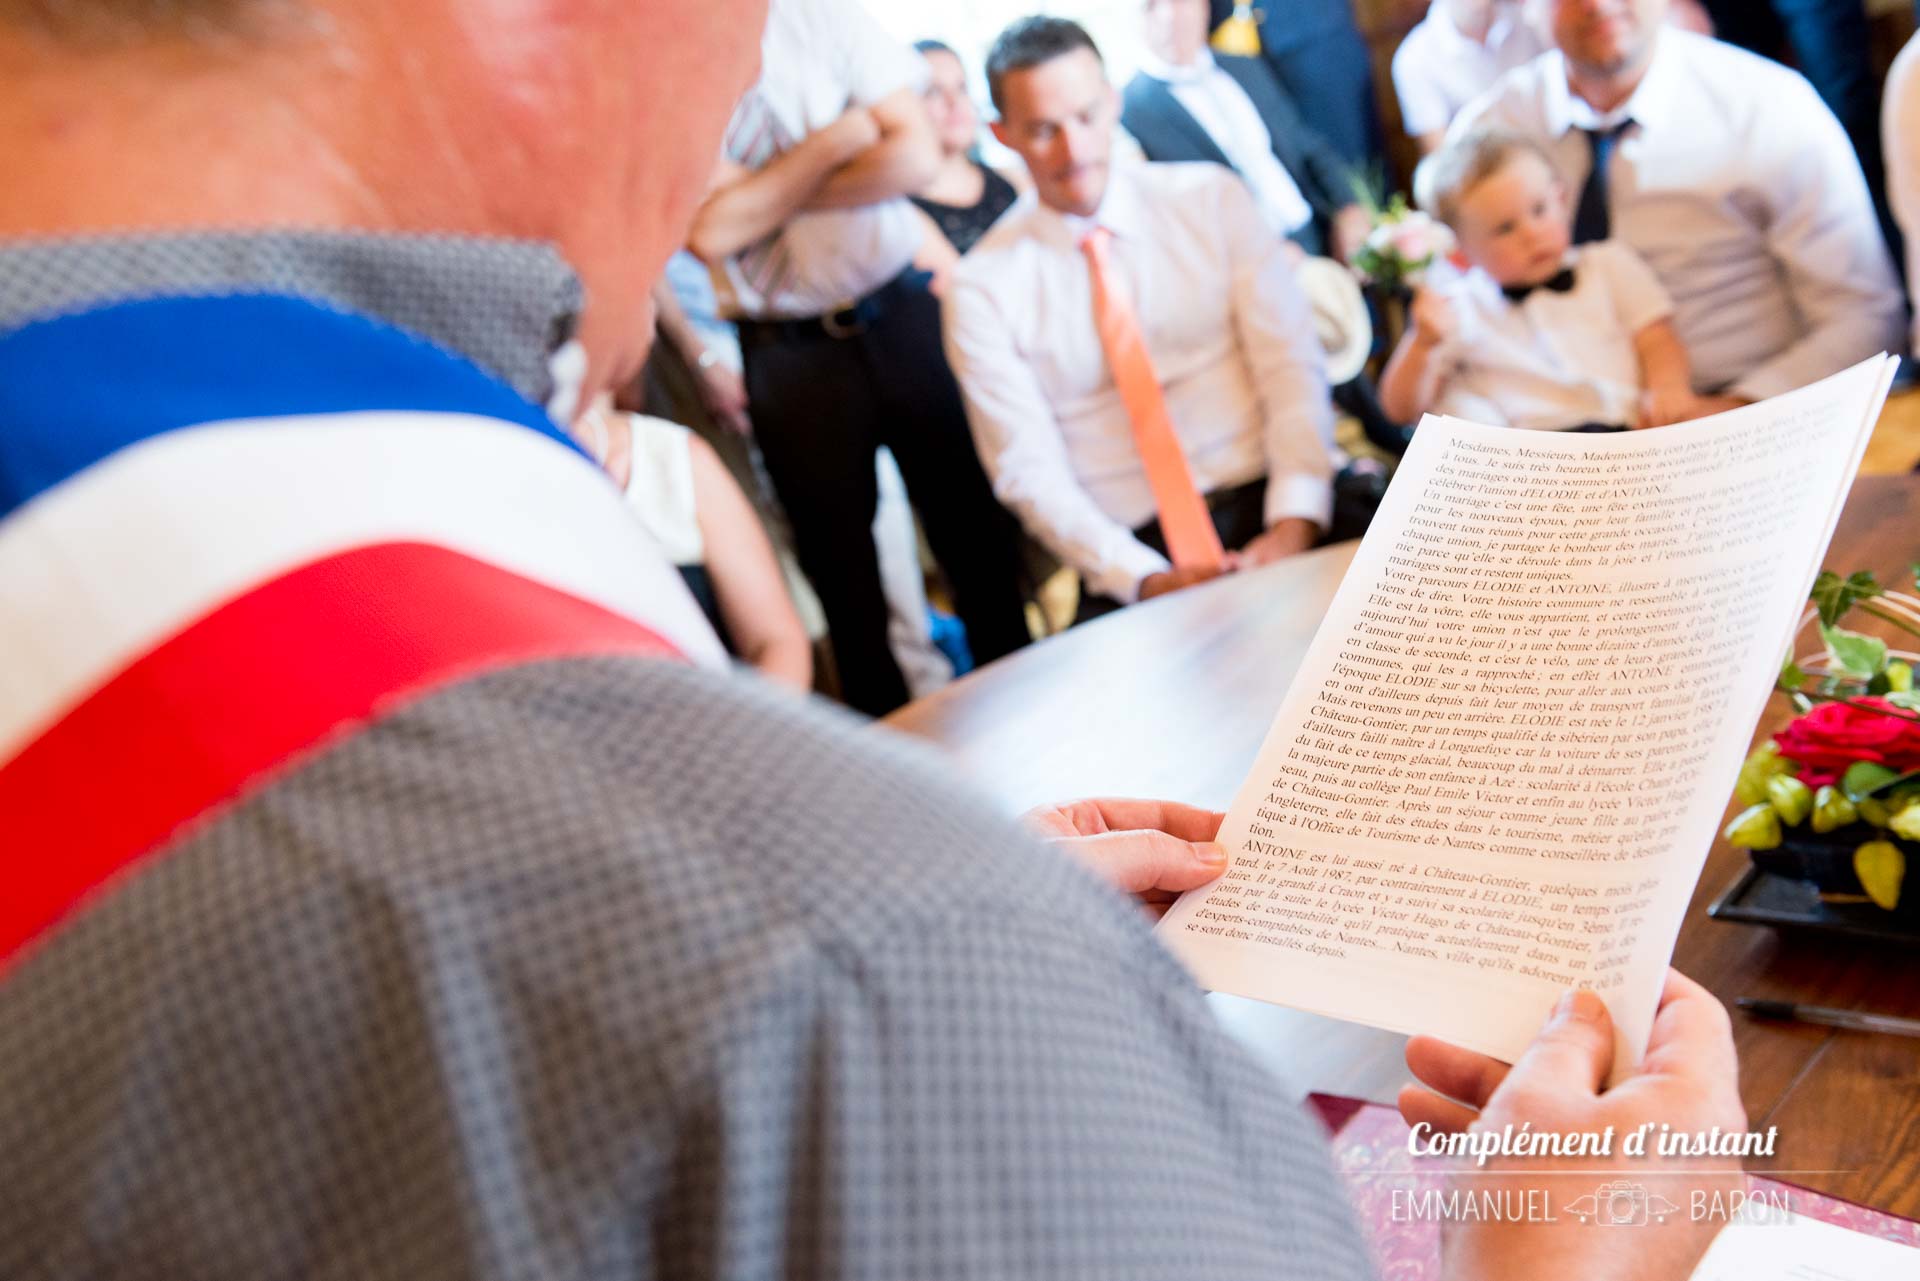 Mesdames, Messieurs, Mademoiselle (on peut encore le dire), Bonjour
à tous. Je suis très heureux de vous accueillir à Azé dans cette salle
des mariages où nous sommes réunis en ce samedi 27 août 2016 pour
célébrer l'union d'ELODIE et d'ANTOINE.
Un mariage c'est une fête, une fête extrêmement importante
pour les nouveaux époux, pour leur famille et pour
trouvent tous réunis pour cette grande occasion. C'est pourquoi
chaque union, je partage le bonheur des mariés. J'aime cette cérémo-
nie parce qu'elle se déroule dans la joie et l'émotion, parce que les
mariages sont et restent uniques.
Votre parcours ELODIE et ANTOINE, illustre à merveille ce que je
viens de dire. Votre histoire commune ne ressemble à aucune autre.
Elle est la vôtre, elle vous appartient, et cette cérémonie qui
aujourd'hui votre union n'est que le prolongement d'une histoire
d'amour qui a vu le jour il y a une bonne dizaine d'année déjà ! C'était
en classe de seconde, et c'est le vélo, une de leurs grandes passions
communes, qui les a rapproché ; en effet ANTOINE emmenait à
l'époque ELODIE sur sa bicyclette, pour aller aux cours de sport. Ils
en ont d'ailleurs depuis fait leur moyen de transport familial favori.
Mais revenons un peu en arrière. ELODIE est née le 12 janvier 1987 à
Château-Gontier, par un temps qualifié de sibérien par son papa, elle a
d'ailleurs failli naître à Longuefuye car la voiture de ses parents a eu
du fait de ce temps glacial, beaucoup du mal à démarrer. Elle a passé
la majeure partie de son enfance à Azé : scolarité à l'école Chant d'Oi-
seau, puis au collège Paul Emile Victor et enfin au lycée Victor Hugo
de Château-Gontier. Après un séjour comme jeune fille au paire en
Angleterre, elle fait des études dans le tourisme, métier qu'elle pra-
tique à l'Office de Tourisme de Nantes comme conseillère de destina-
tion.
ANTOINE est lui aussi né à Château-Gontier, quelques mois plus
tard, le 7 Août 1987, par contrairement à ELODIE, un temps canicu-
laire. Il a grandi à Craon et y a suivi sa scolarité jusqu'en 3ème. Il re-
joint par la suite le lycée Victor Hugo de Château-Gontier, fait des
études de comptabilité qu'il pratique actuellement dans un cabinet
d'experts-comptables de Nantes... Nantes, ville qu'ils adorent et où ils
se sont donc installés depuis.
Complément d'instant
EMMANUEL BARON